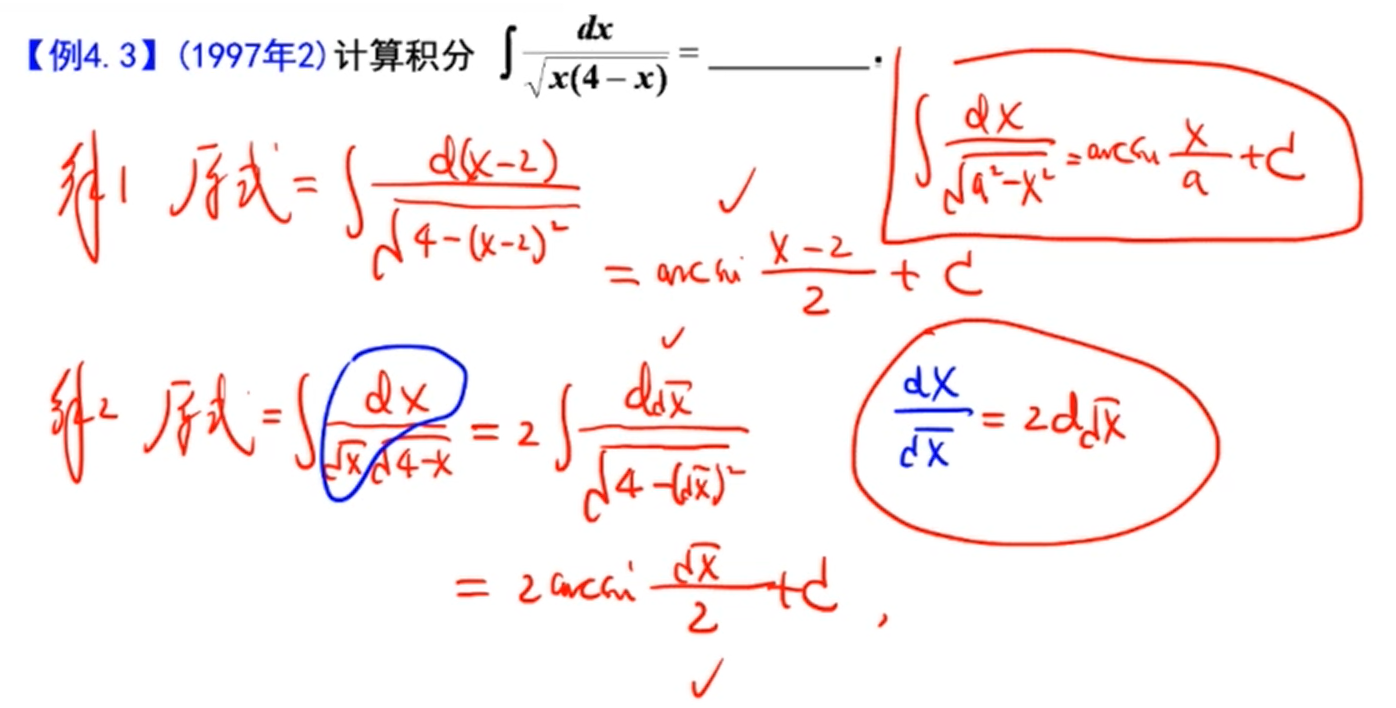 【例4.3】(1997年2)计算积分 ∫ dx/√(x(4-x)) = ________.
∫ dx/√(a²-x²) = arcsin x/a + C
解1 原式 = ∫ d(x-2)/√(4-(x-2)²)
= arcsin (x-2)/2 + C
解2 原式 = ∫ dx/(√x √(4-x)) = 2∫ d√x/√(4-(√x)²)
dx/√x = 2d√x
= 2 arcsin √x/2 + C ,